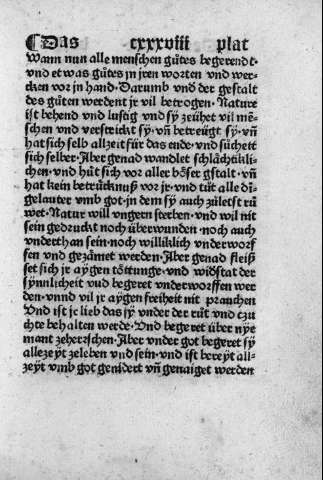 ¶Das cxxxviii plat
Wann nun alle menschen gůtes begerendt·
vnd etwas gůtes jn jren worten vnd wer⸗
cken vor in hand· Darumb vnd der gestalt
des gůten werdent jr vil betrogen· Nature
ist behend vnd lustig vnd sÿ zeühet vil mē⸗
schen vnd verstrickt sÿ· vñ betreügt sÿ· vñ
hat sich selb allzeit für das ende· vnd sůcheit
sich selber· Aber genad wandlet schlächtikli⸗
chen· vnd hüt sich vor aller böser gstalt· vñ
hat kein betrücknuß vor jr· vnd tůt alle dī⸗
ge lauter vmb got· jn dem sÿ auch zůletst rů
wet· Natur will vngern sterben· vnd wil nit
sein gedruckt noch überwunden· noch auch
vnderthan sein· noch williklich vnderworf
fen vnd gezämet werden· Aber genad fleiß
set sich jr aÿgen töttunge· vnd widstat der
sÿnnlicheit vnd begeret vnderworffen wer
den· vnnd vil jr aÿgen freiheit nit prauchen
Vnd ist je lieb das sÿ vnder der růt vnd czu
chte behalten werde· Vnd begeret über nye
mant zeherrschen· Aber vnder got begeret sÿ
allezeÿt zeleben vnd sein· vnd ist bereÿt all⸗
zeÿt vmb got genidert vñ genaiget werden